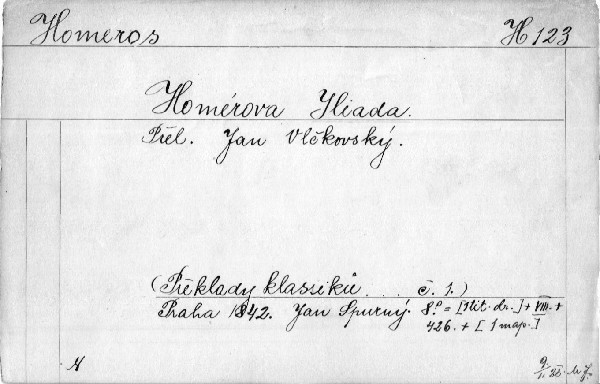 Homeros H 123
Homérova Iliada.
Přel. Jan Vlčkovský.
(Překlady klassiků . . . č. 1.)
Praha 1842. Jan Spurný. 8.° = [1 tit. dr.] + VIII. +
426. + [1 map.]
A